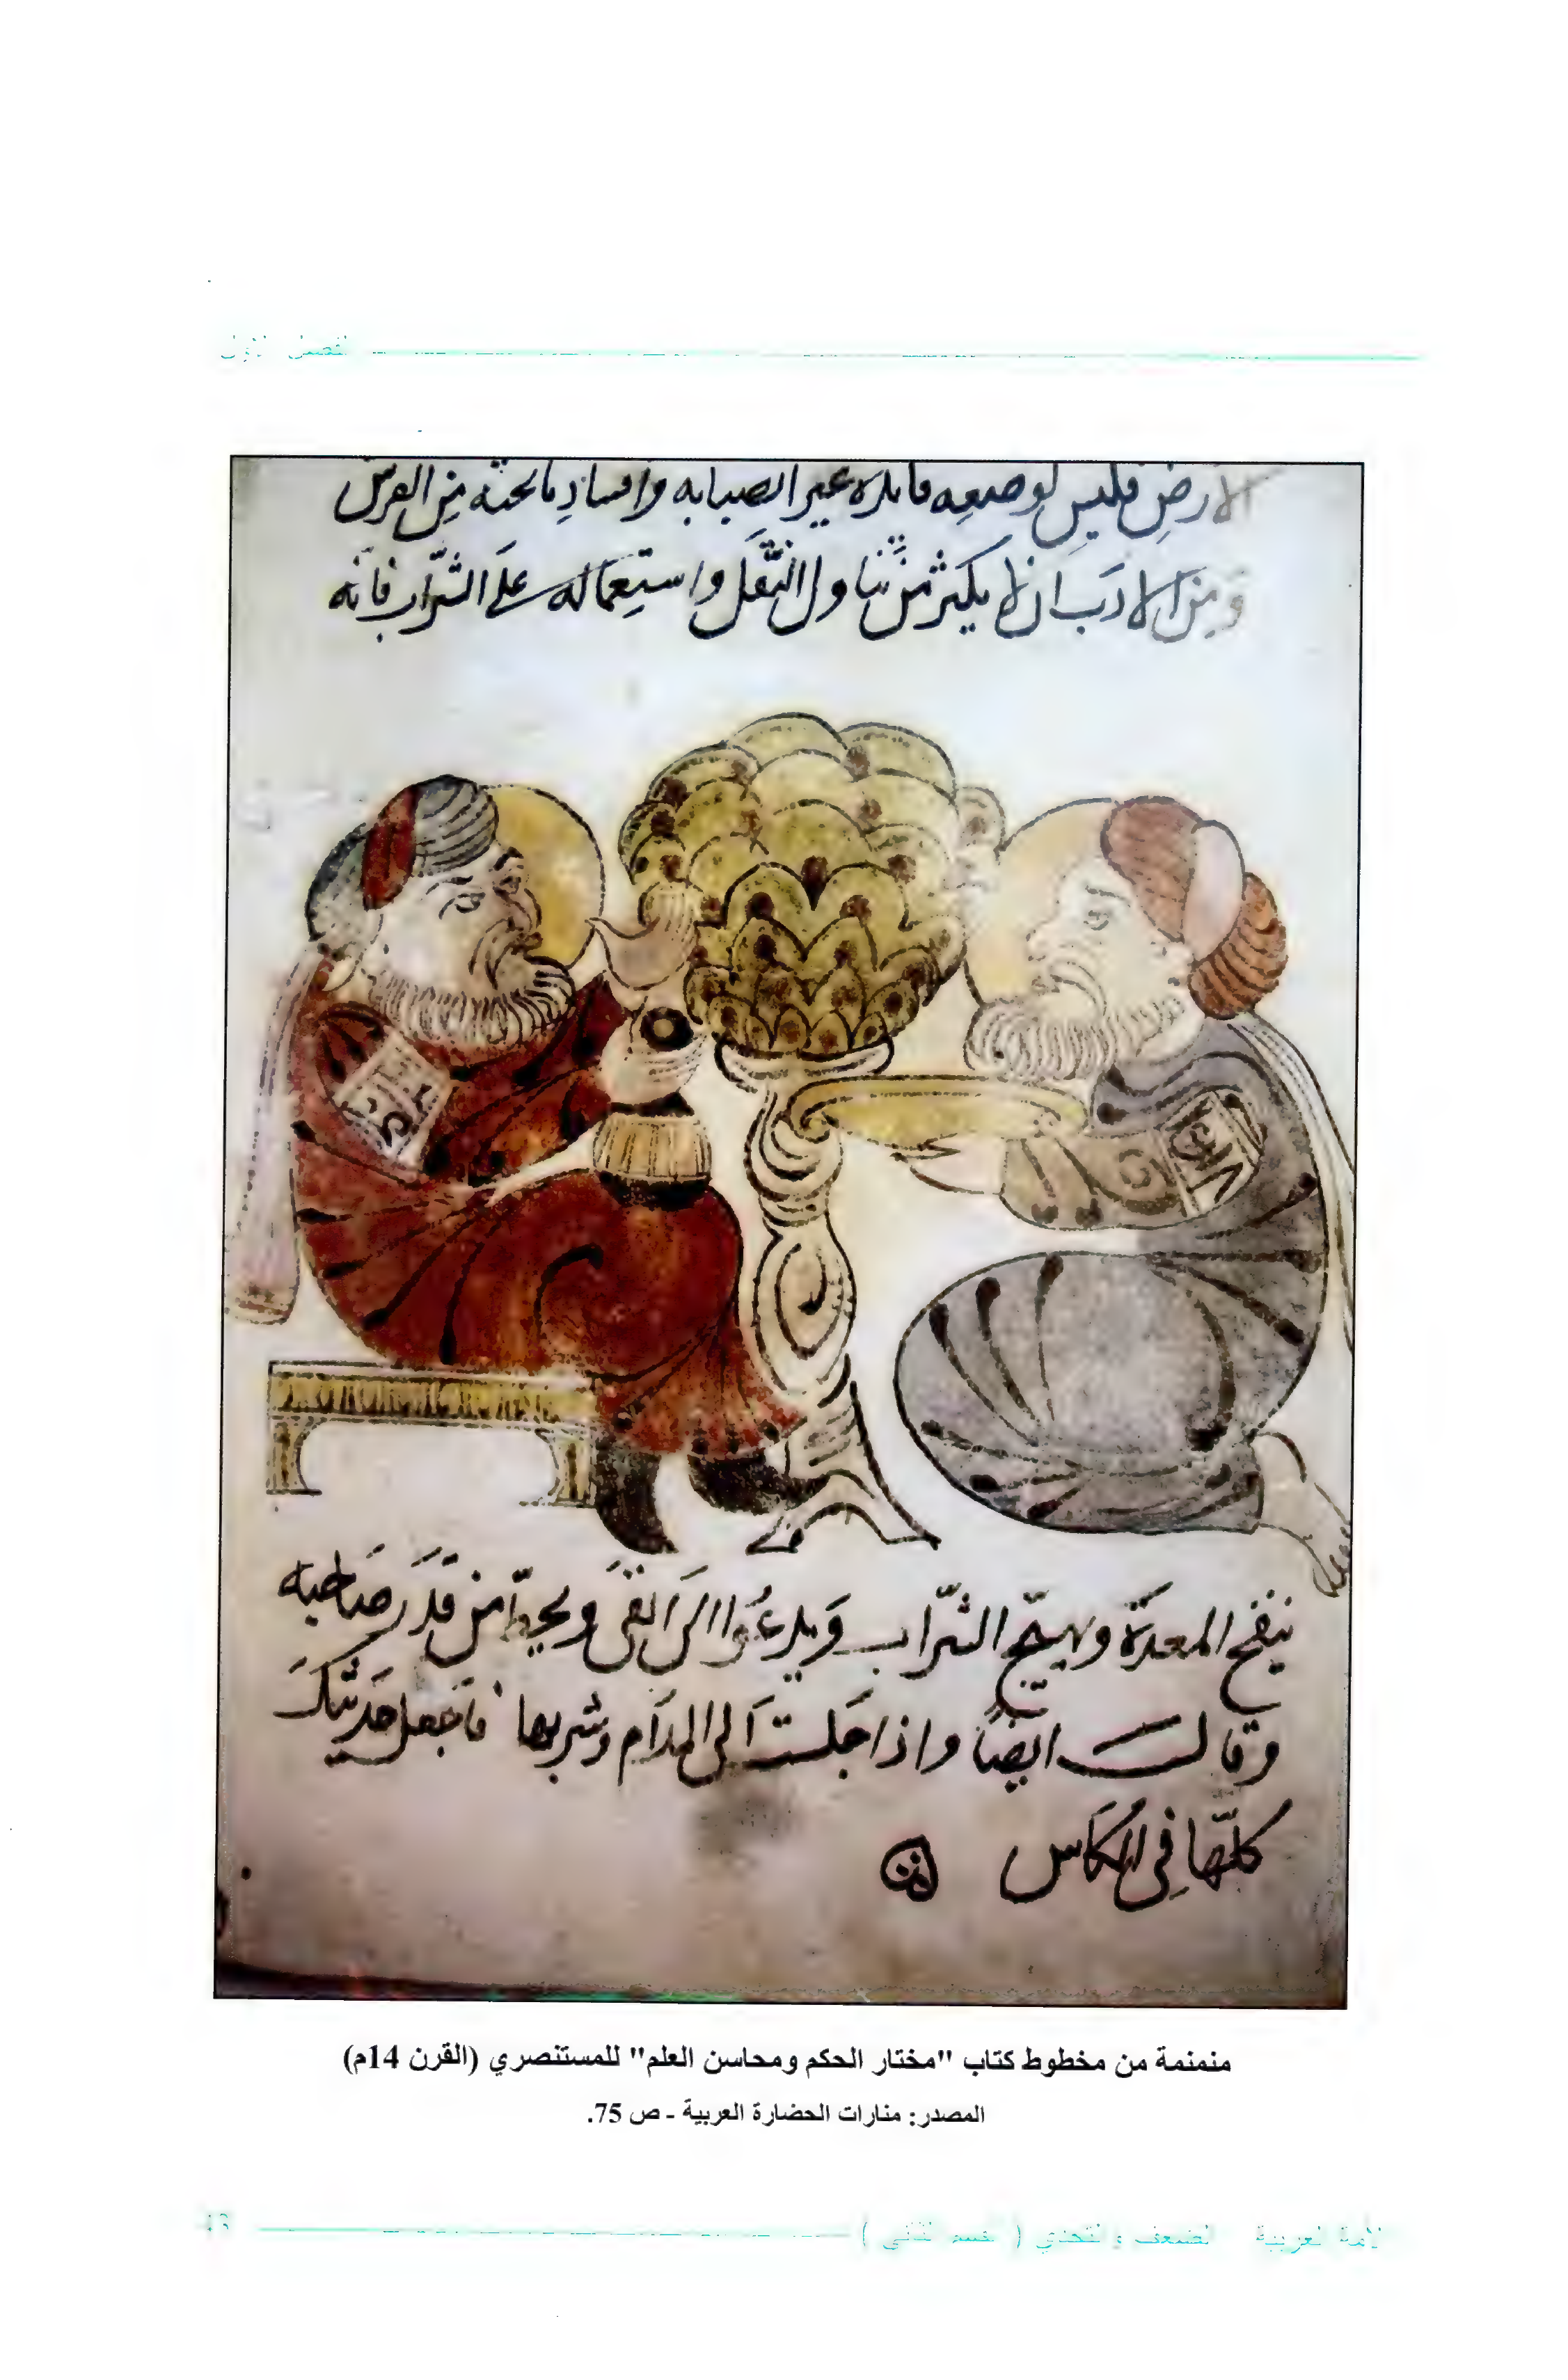 الفصل الأول
الأرض فليس لوضعه فايده غير الصبابه وافساد ما تحته من الفرش
ومن الادب ان لا يكثر من تناول النقل واستعماله على الشراب فانه
ينفخ المعدة ويهيج الشراب ويدعوا الى القى ويحط من قدر صاحبه
وقال ايضا واذا جلست الى المدام وشربها فاجعل حديثك
كلها في الكاس
منمنمة من مخطوط كتاب "مختار الحكم ومحاسن العلم" للمستنصري (القرن 14م)
المصدر: منارات الحضارة العربية - ص 75.
الأمة العربية الضعف والتحدي ( القسم الثاني )